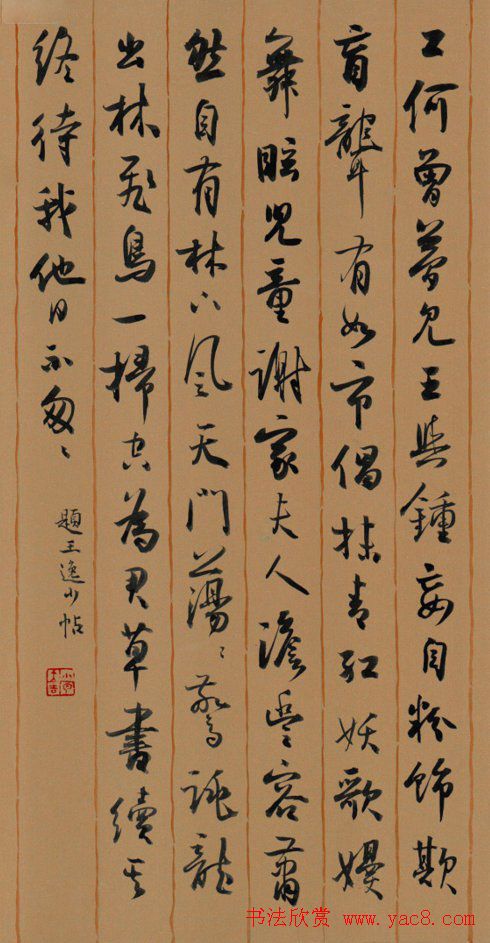 工何曾夢見王與鍾妄自粉飾欺
盲聾有如市倡抹青紅妖歌嫚
舞眩兒童謝家夫人澹豐容蕭
然自有林下風天門蕩〻驚跳龍
出林飛鳥一掃空為君草書續其
終待我他日不匆〻
題王逸少帖
书法欣赏 www.yac8.com